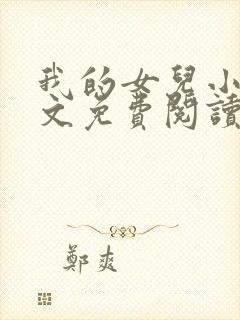 我的女兒小
文免費閱讀
鄭爽